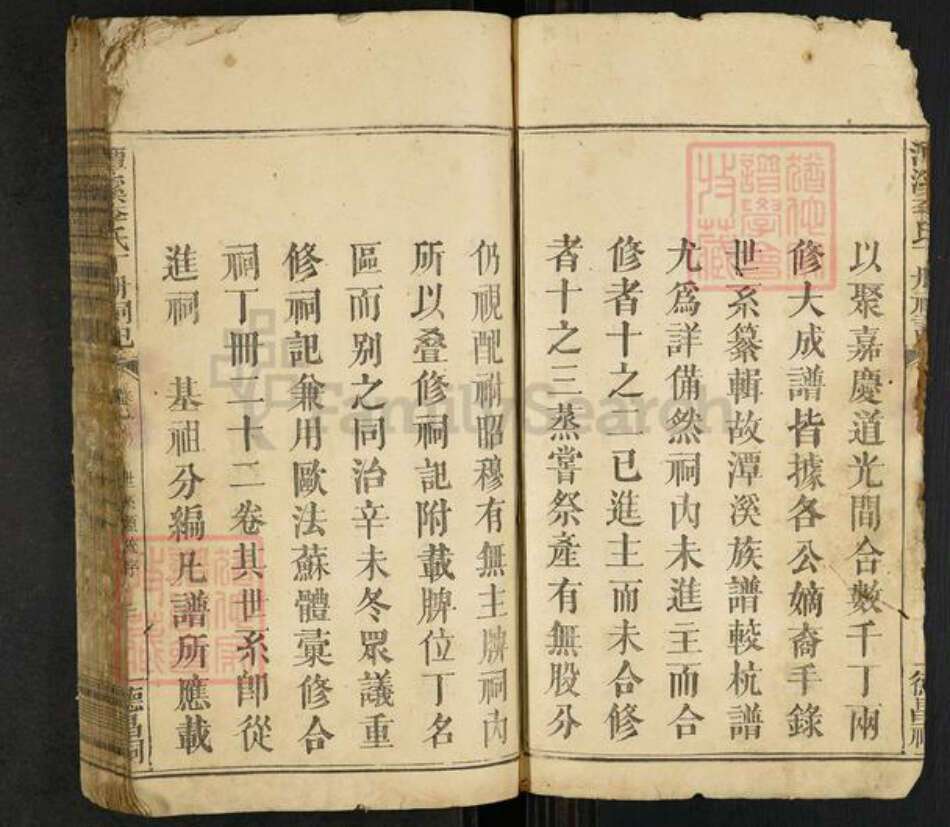 以聚嘉慶道光間合數千丁兩
修大成譜皆據各公嫡裔手錄
世系纂輯故潭溪族譜較杭譜
尤為詳備然祠內未進主而合
修者十之二已進主而未合修
者十之三蒸嘗祭產有無股分
仍視配祔昭穆有無主牌祠內
所以叠修祠記附載牌位丁名
區而別之同治辛未冬眾議重
修祠記兼用歐法蘇體彙修合
祠丁冊二十二卷其世系卽從
進祠 基祖分編凡譜所應載
德昌祠
FamilySearch